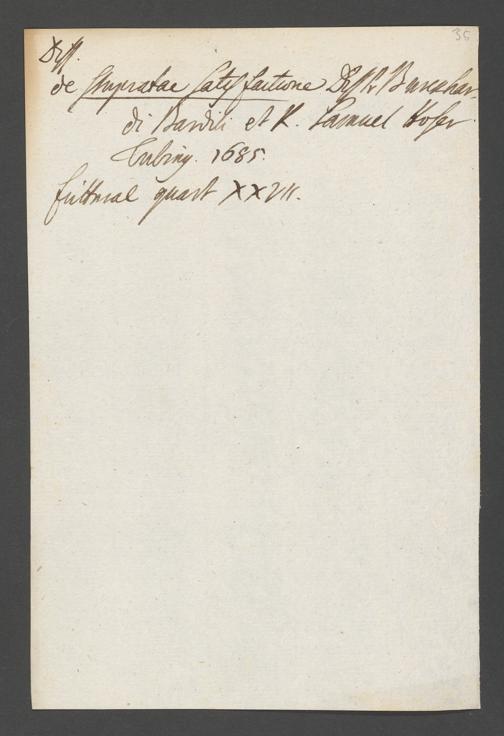 35
Diss.
de stupratae satisfactione Diss. Burckhar-
di Bardili et R. Samuel Hofer
Tubing. 1685.
quart XXVII.